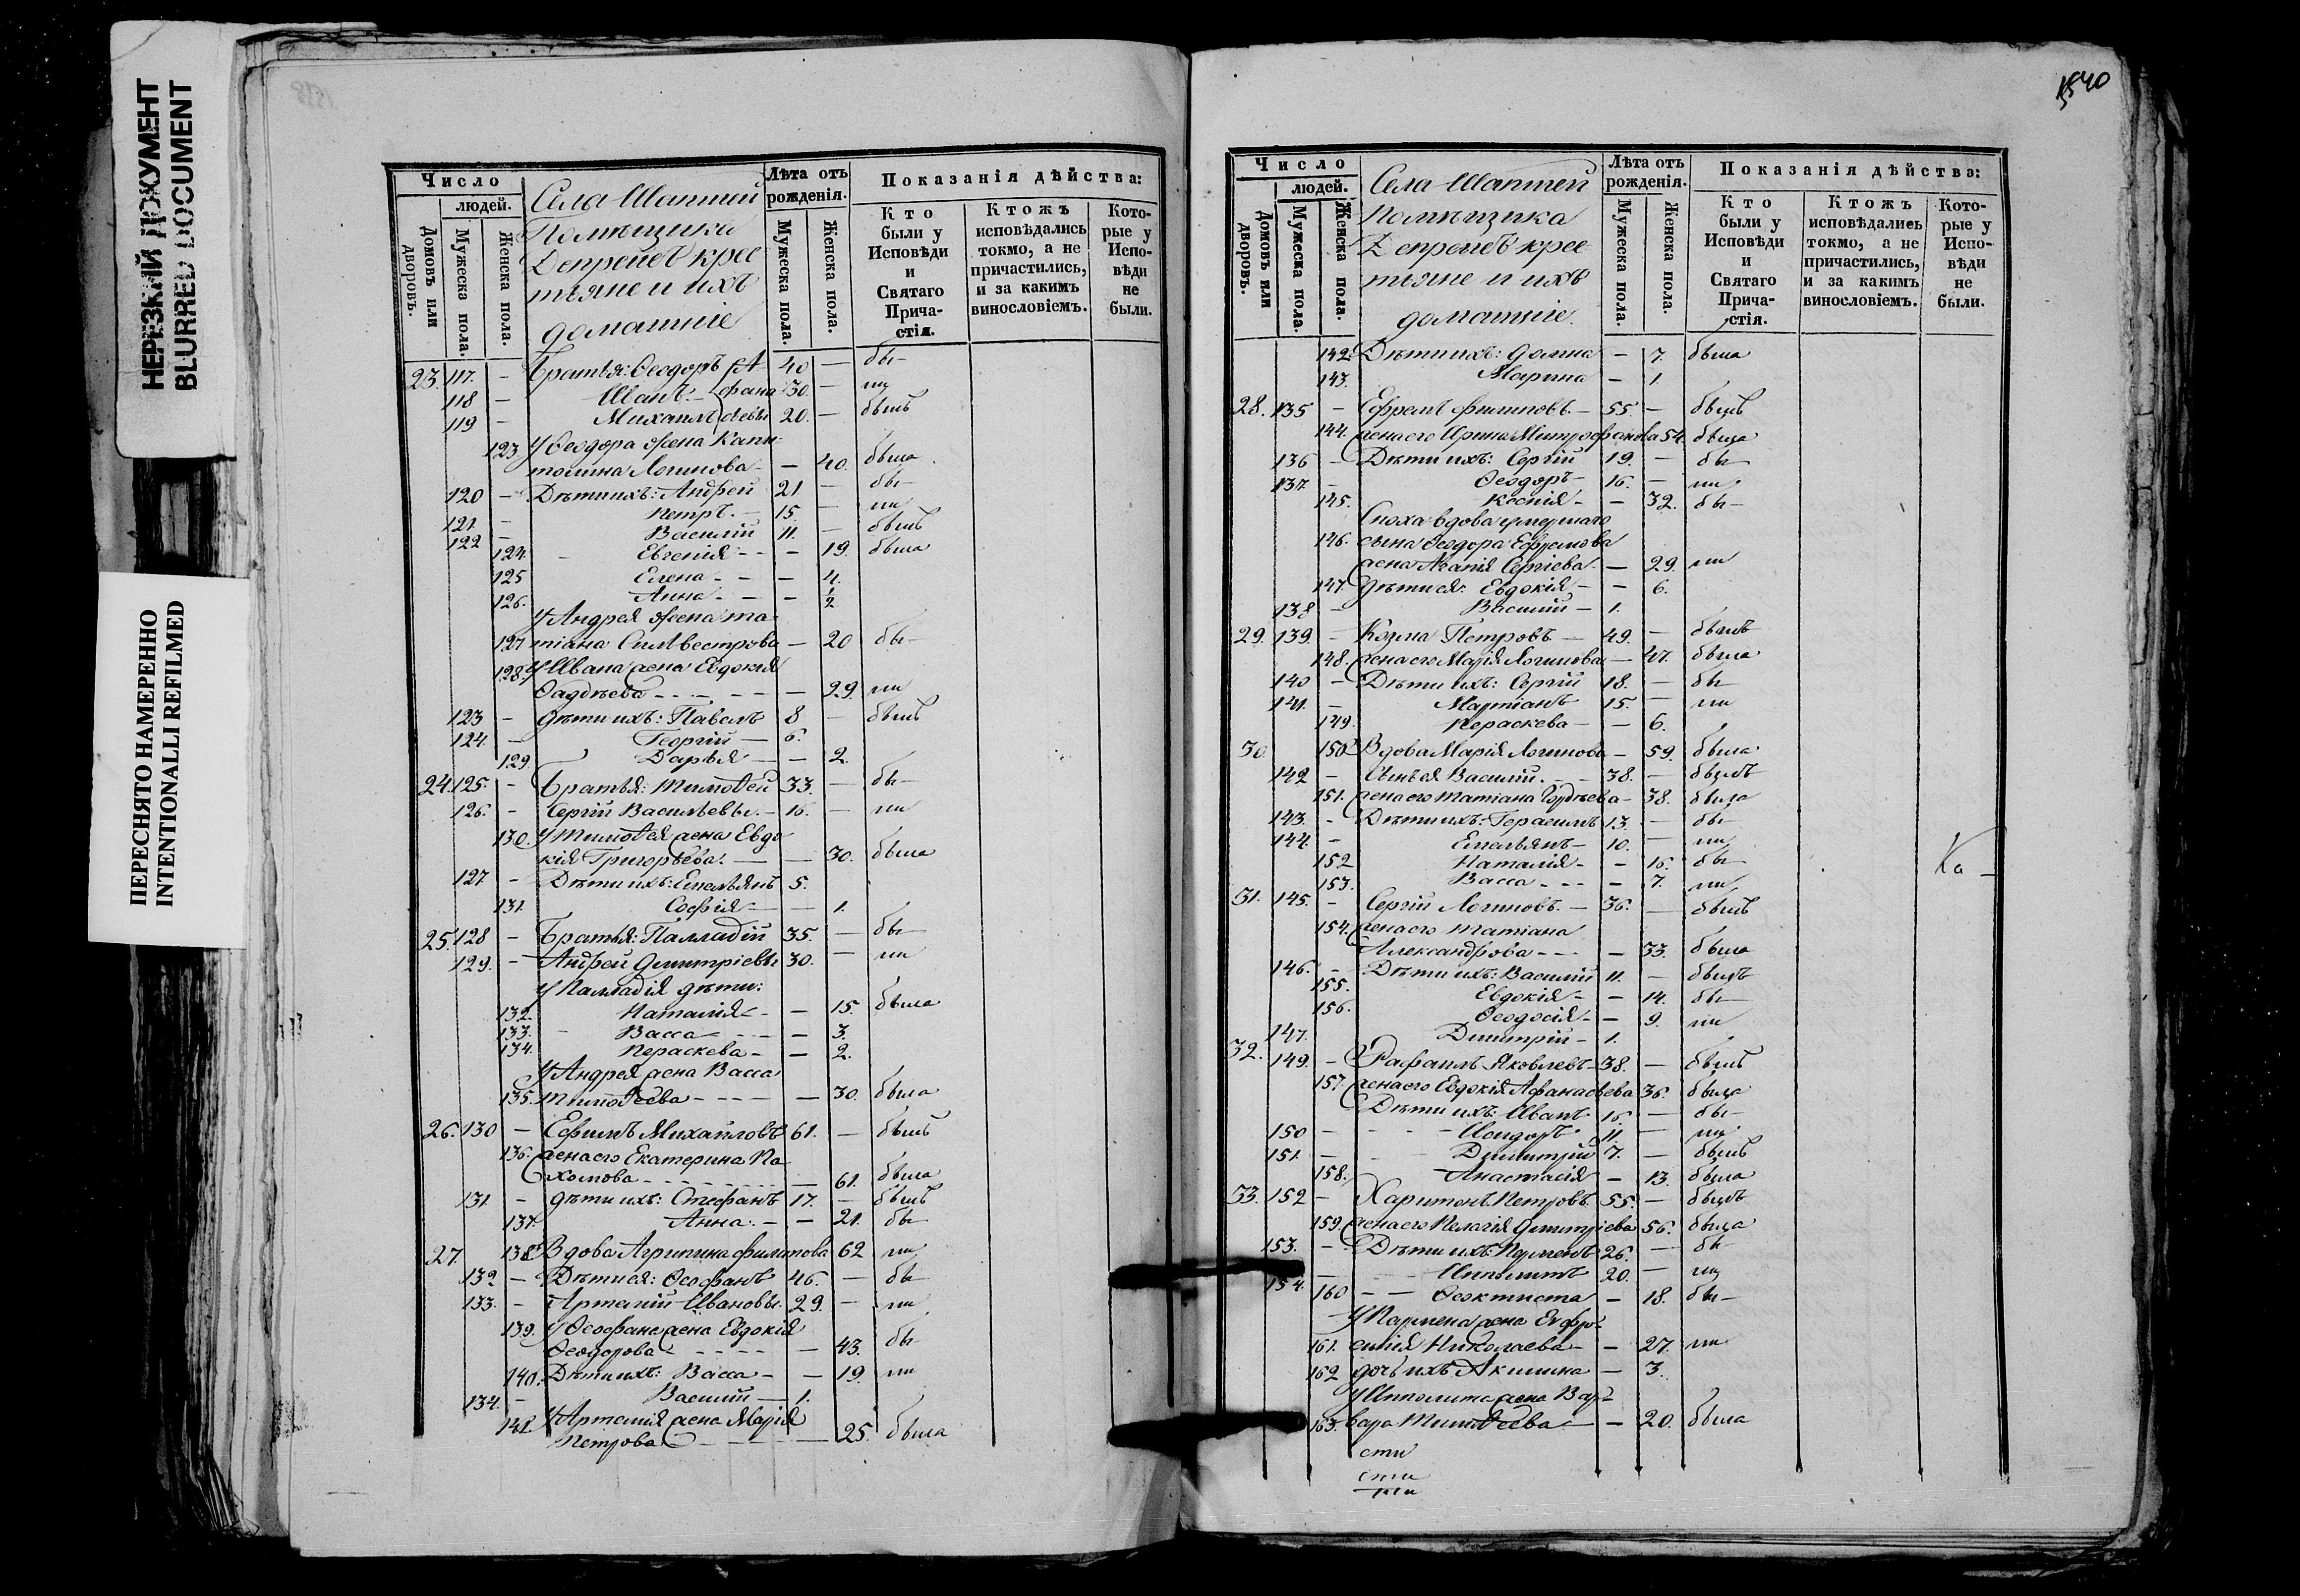 НЕРЕЗКИЙ ДОКУМЕНТ
BLURRED DOCUMENT
ПЕРЕСНЯТО НАМЕРЕННО
INTENTIONALLI REFILMED
Число
людей.
Домовъ или дворовъ.
Мужеска пола.
Женска пола.
Села Шаптей
Помѣщика
Депрейсъ крес
тьяне и ихъ
домашніе
Лѣта отъ рожденія.
Мужеска пола.
Женска пола.
Показанія дѣйства:
Кто были у Исповѣди и Святаго Прича-стія.
Ктожъ исповѣдались токмо, а не причастились, и за какимъ винословіемъ.
Кото-рые у Испо-вѣди не были.
23. 117. – Братья: Ѳеодоръ Аѳа 40 – бы
118 – Иванъ – фана 30. – ли
119 – Михаилъ сѣевы 20. – былъ
123. У Ѳеодора жена Капи
толина Логинова – – 40. была
120 – Дѣти ихъ: Андрей 21 – бы
121. – Петръ. – 15. – ли
122 – Василій 11. – былъ
124. – Евгенія – – – 19. была
125 Елена – – – 4.
126. Анна – – – 1/2
У Андрея жена Та
127 тіана Сильвестрова – 20 бы
128. У Ивана жена Евдокія
Ѳаддѣева – – – – 29. ли
123 – Дѣти ихъ: Павелъ 8 – былъ
124. – Георгій – 6.
129. Дарья – – 2.
24. 125. – Братья: Тимоѳей 33. – бы
126. – Сергій Васильевы – 16. – ли
130. У Тимоѳея жена Евдо
кія Григорьева. – – 30. была
127 – Дѣти ихъ: Емельянъ 5.
131. Софія – – 1.
25. 128 – Братья: Палладій 35. – бы
129. – Андрей Димитріевы 30. – ли
У Палладія дѣти:
132. Наталія – – 15. была
133. – Васса – – – 3.
134. Параскева – – 2.
У Андрея жена Васса
135. Тимоѳеева – – – – 30. была
26. 130 – Ефимъ Михайловъ 61. – былъ
136. жена его Екатерина Па
хомова – – – – 61. была
131 – дѣти ихъ: Стефанъ 17. – былъ
137. Анна. – – 21. бы
27. 138. Вдова Агрипина Филипова 62 ли
132 – Дѣти ея: Ѳеофанъ 46. – бы
133. – Артемій Ивановы. 29. – ли
139. У Ѳеофана жена Евдокія
Ѳеодорова – – – – 43. бы
140. Дѣти ихъ: Васса – – 19. ли
134. – Василій – 1.
141. У Артемія жена Марія
Петрова – – – – 25. была
1540
Число
людей.
Домовъ или дворовъ.
Мужеска пола.
Женска пола.
Села Шаптей
Помѣщика
Депрейсъ крес
тьяне и ихъ
домашніе.
Лѣта отъ рожденія.
Мужеска пола.
Женска пола.
Показанія дѣйства:
Кто были у Исповѣди и Святаго Прича-стія.
Ктожъ исповѣдались токмо, а не причастились, и за какимъ винословіемъ.
Кото-рые у Испо-вѣди не были.
142. Дѣти ихъ: Домна – 7. была
143. Марина – 1
28. 135 – Ефремъ Филиповъ. – 55. – былъ
144. жена его Ирина Митрофанова 54. была
136 – Дѣти ихъ: Сергій 19. – бы
137. – Ѳеодоръ – 16. – ли
145. Ксенія – – 32. бы
Сноха вдова умершаго
146. сына Ѳеодора Ефремова
жена Агапія Сергіева. – 29. ли
147. Дѣти ея: Евдокія – – 6.
138 – Василій – 1.
29. 139. – Козма Петровъ – 49. – былъ
148. жена его Марія Логинова – 47. была
140 – Дѣти ихъ: Сергій 18. – бы
141. – Мартіанъ 15. – ли
149. Параскева – – 6.
30. 150. Вдова Марія Логинова – 59. была
142 – Сынъ ея Василій. – 38. – былъ
151. жена его Татіана Гордѣева – 38. была
143. – Дѣти ихъ: Герасимъ 13. – бы
144. – Емельянъ – 10. – ли
152 Наталія – – 16. бы
153. Васса – – – 7. ли
Ка –
31. 145. – Сергій Логиновъ. – 36. – былъ
154. жена его Татіана
Александрова – – – 33. была
146. – Дѣти ихъ: Василій 11. – былъ
155. Евдокія – – 14. бы
156. Ѳеодосія – – 9. ли
147. Димитрій – 1.
32. 149. – Рафаилъ Яковлевъ – 38. – былъ
157. жена его Евдокія Афанасьева 36. была
Дѣти ихъ. Иванъ 16. – бы
150 – – – Исидоръ 11. – ли
151. – – Димитрій 7. – былъ
158. Анастасія – 13. была
33. 152 – Харитонъ Петровъ. 55. – былъ
159. жена его Пелагія Димитріева 56. была
153. – Дѣти ихъ: Парменъ 26. – бы
154. – – Ипполитъ 20. – ли
160 – – Ѳеоктиста – 18. бы
У Пармена жена Евфро
161. синія Николаева – – 27. ли
162 дочь ихъ Акилина – 3.
У Ипполита жена Вар
163. вара Тимоѳеева – – 20. была